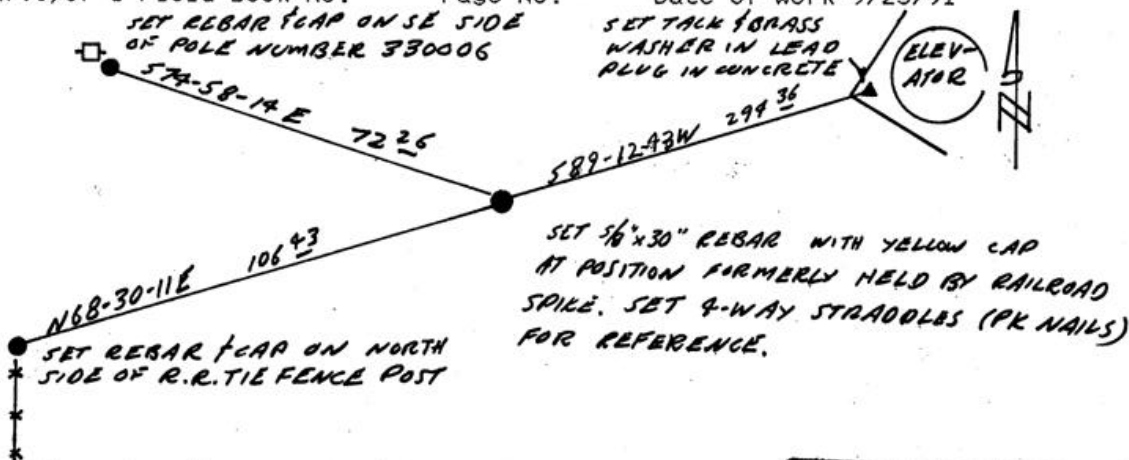 Field Book No. Page No. Date of Work 9/23/91
SET REBAR & CAP ON SE SIDE
OF POLE NUMBER 330006
SET TACK & BRASS
WASHER IN LEAD
PLUG IN CONCRETE
ELEV-
ATOR
N
S74-58-14E 72 26
S89-12-43W 294 36
N68-30-11E 106 43
SET 5/8"x30" REBAR WITH YELLOW CAP
AT POSITION FORMERLY HELD BY RAILROAD
SPIKE. SET 4-WAY STRADDLES (PK NAILS)
FOR REFERENCE.
SET REBAR & CAP ON NORTH
SIDE OF R.R. TIE FENCE POST